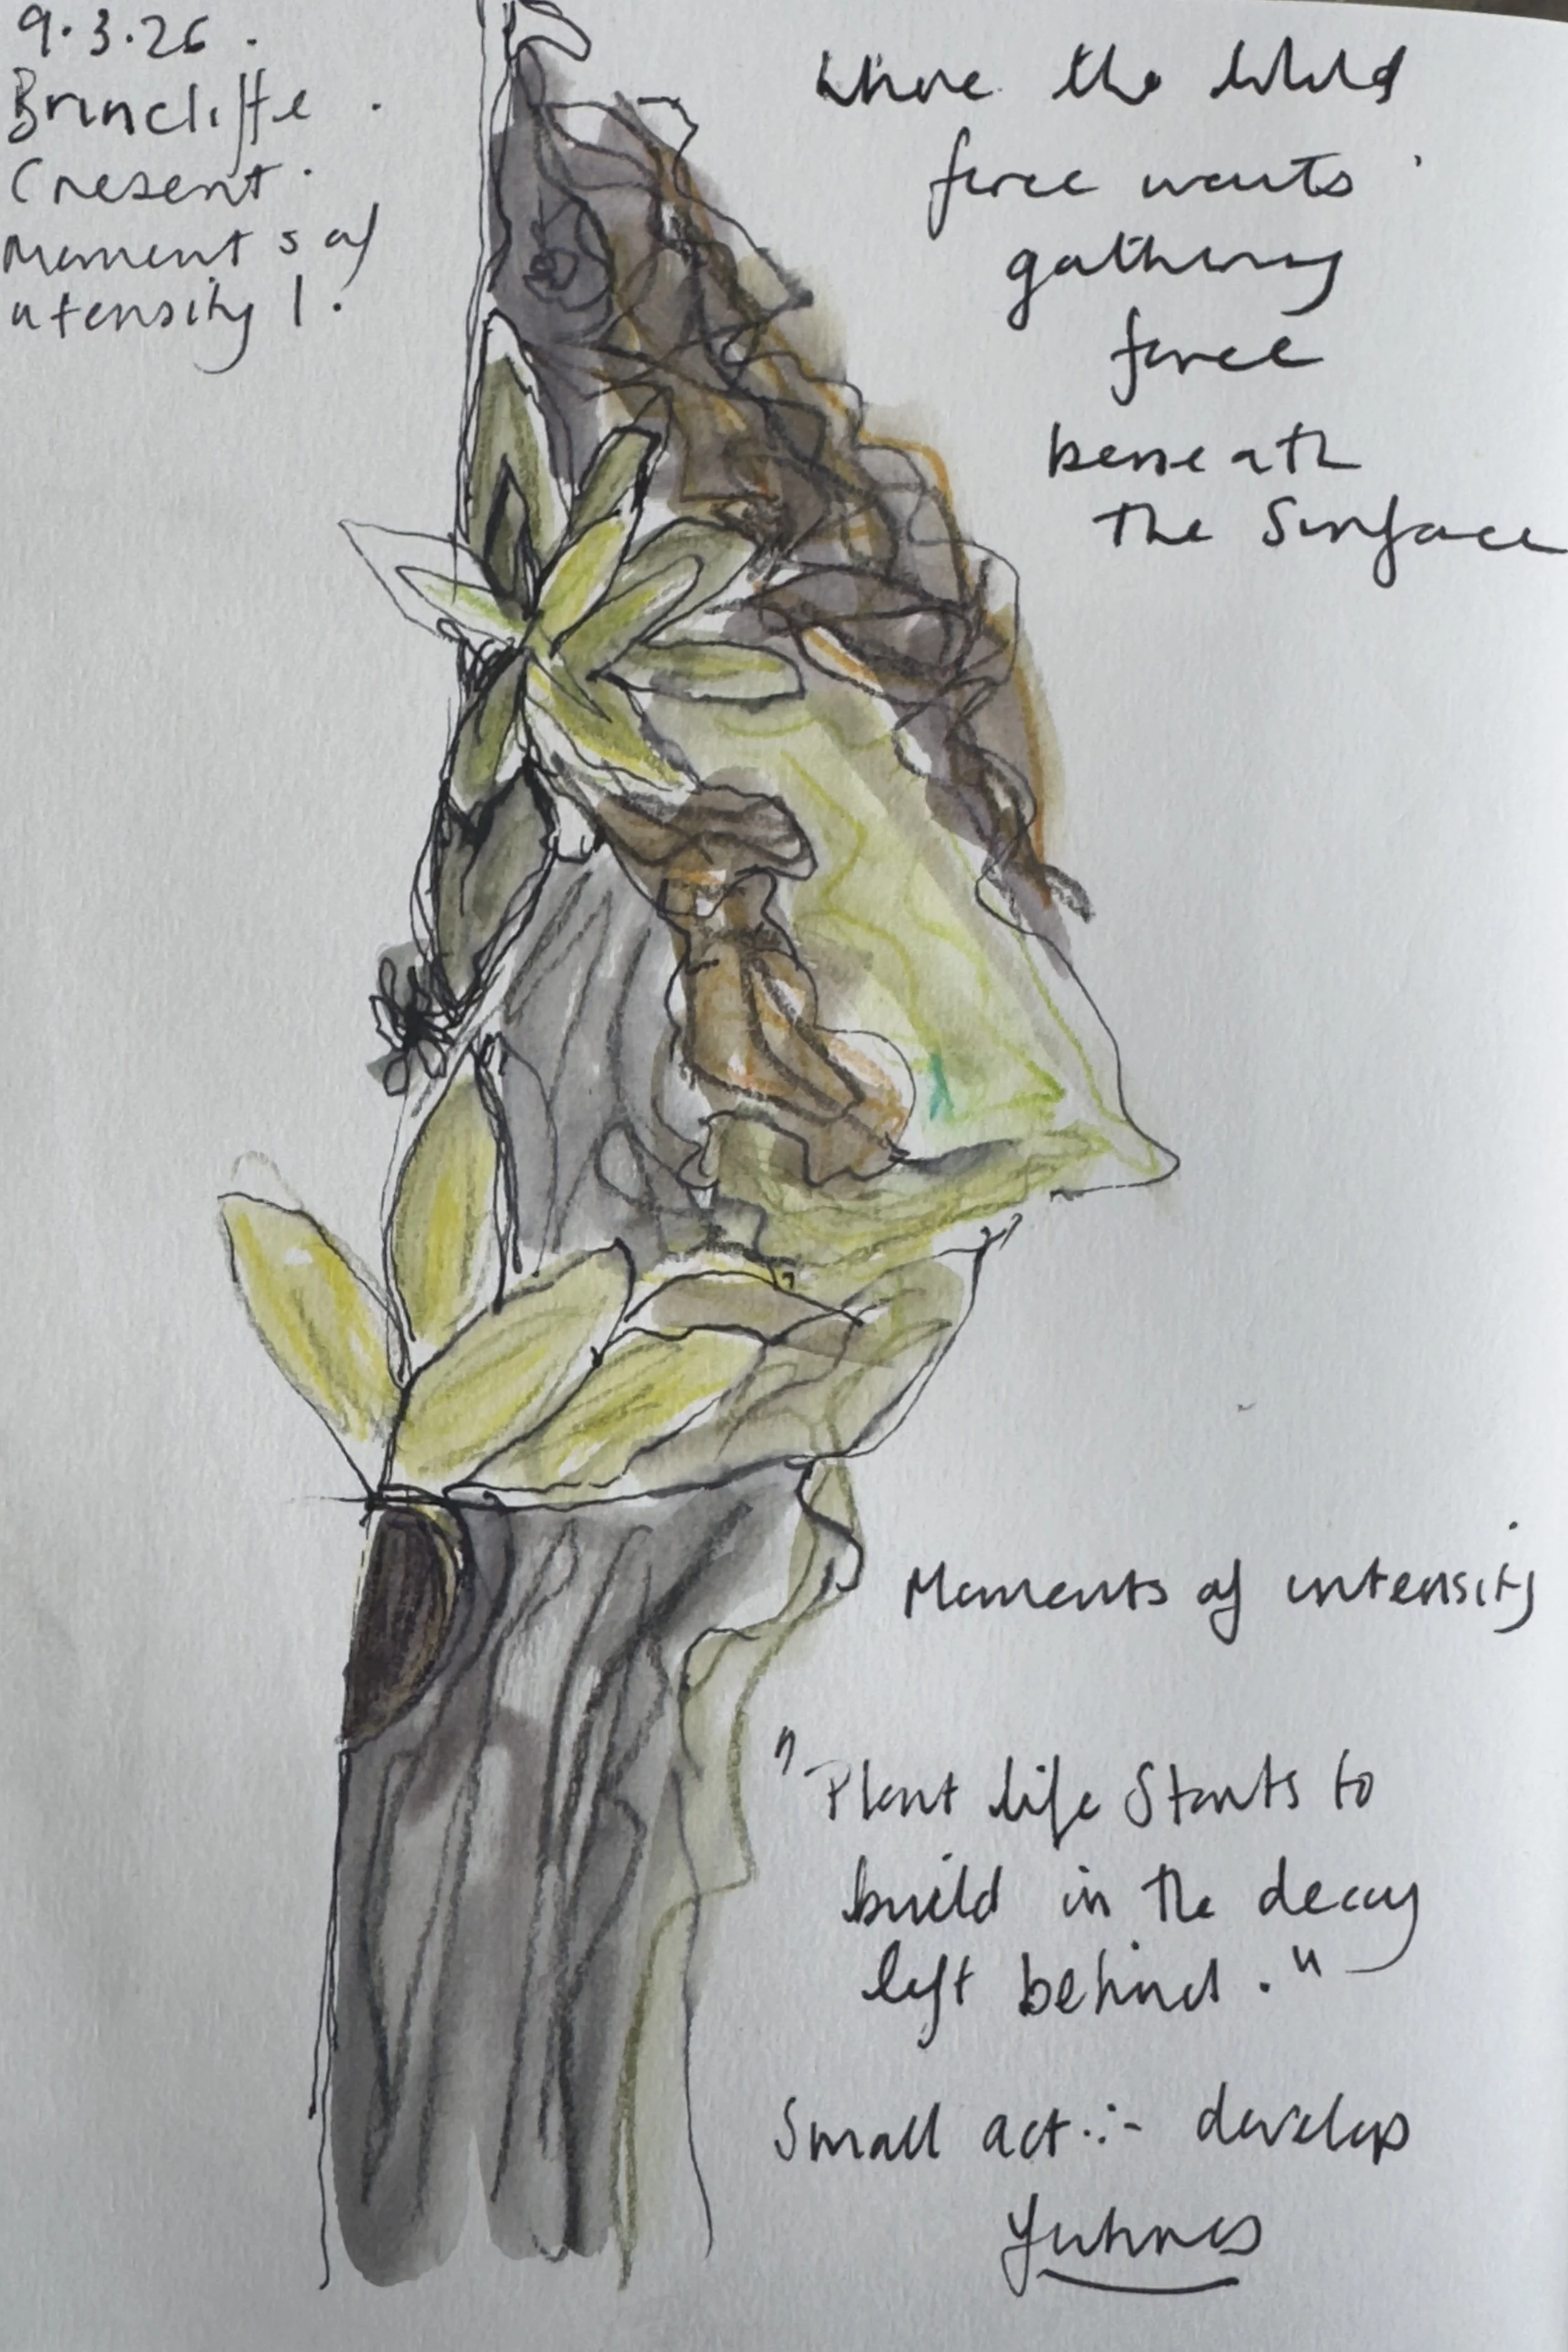 9.3.26.
Brincliffe.
Cresent.
Moments of
intensity 1.
Where the Wild
force waits
gathering
force
beneath
the Surface
Moments of intensity
"Plant life Starts to
build in the decay
left behind."
Small act :- develop